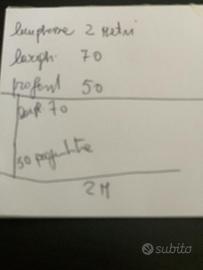 lunghezza 2 metri
largh. 70
profond 50
70
50 profondità
2 M
subito